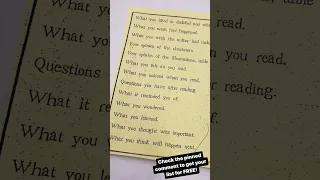 What you liked or disliked and
What you wish had happened.
What you wish the author had
Your opinion of the characters.
Your opinion of the illustrations,
What you felt as you read.
What you noticed when you read.
Questions you have after reading.
What it reminded you of.
What you wondered.
What you learned.
What you thought was important.
What you think will happen next.
you read.
Questions
reading.
What it
What
What
What you
Check the pinned
comment to get your
list for FREE!